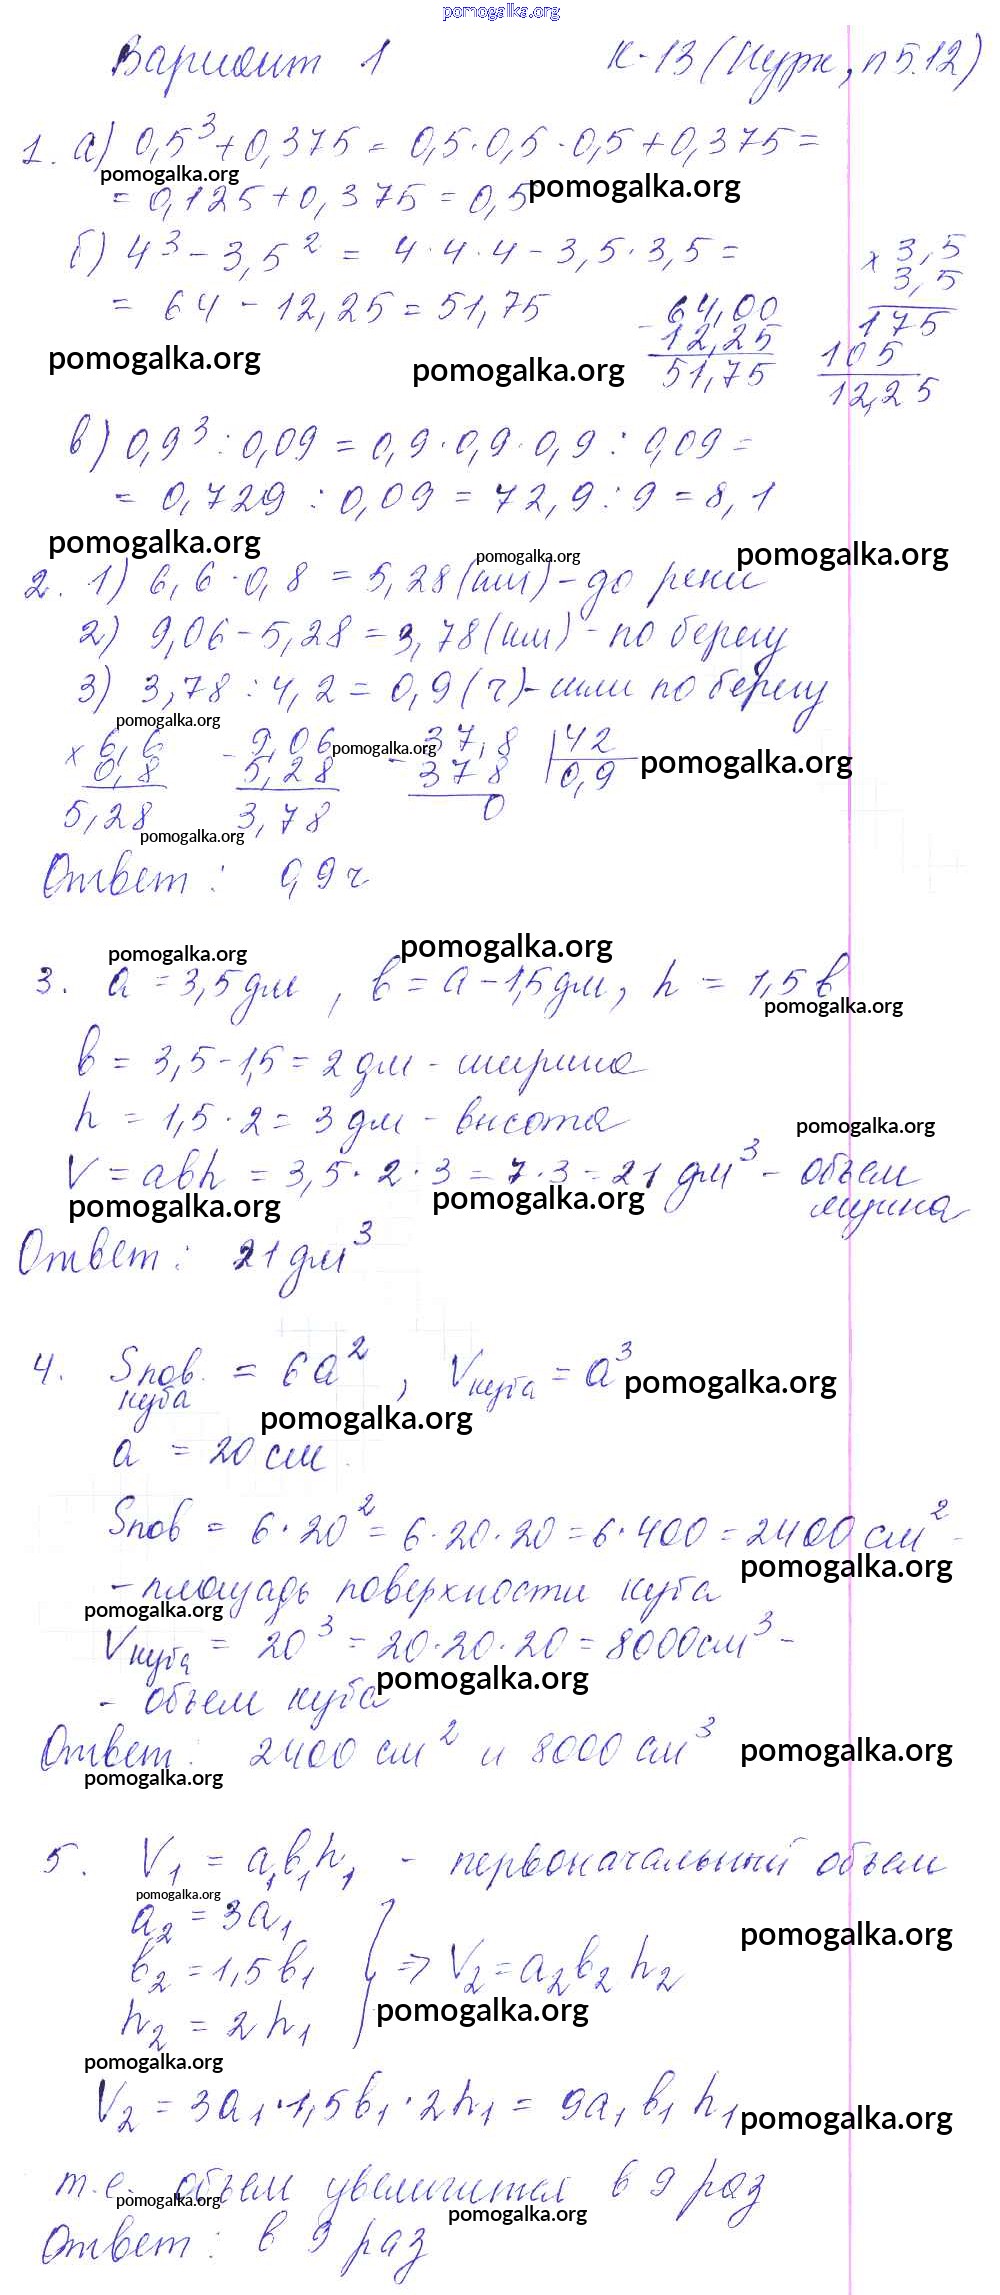 pomogalka.org
Вариант 1 К-13 (Нурк, п 5.12)
1. а) 0,5³ + 0,375 = 0,5 · 0,5 · 0,5 + 0,375 =
pomogalka.org
= 0,125 + 0,375 = 0,5 pomogalka.org
б) 4³ - 3,5² = 4 · 4 · 4 - 3,5 · 3,5 =
= 64 - 12,25 = 51,75
× 3,5
3,5
175
105
12,25
- 64,00
12,25
51,75
pomogalka.org pomogalka.org
в) 0,9³ : 0,09 = 0,9 · 0,9 · 0,9 : 0,09 =
= 0,729 : 0,09 = 72,9 : 9 = 8,1
pomogalka.org pomogalka.org pomogalka.org
2. 1) 6,6 · 0,8 = 5,28 (км) - до реки
2) 9,06 - 5,28 = 3,78 (км) - по берегу
3) 3,78 : 4,2 = 0,9 (ч) - шли по берегу
pomogalka.org
× 6,6
0,8
5,28
- 9,06
5,28
3,78
pomogalka.org
- 37,8 | 42
378 0,9
0
pomogalka.org
pomogalka.org
Ответ : 0,9 ч
pomogalka.org pomogalka.org
3. a = 3,5 дм , в = a - 1,5 дм, h = 1,5 в
pomogalka.org
в = 3,5 - 1,5 = 2 дм - ширина
h = 1,5 · 2 = 3 дм - высота
pomogalka.org
V = aвh = 3,5 · 2 · 3 = 7 · 3 = 21 дм³ - объем
ящика
pomogalka.org pomogalka.org
Ответ : 21 дм³
4. Sпов. = 6a² , Vкуба = a³ pomogalka.org
куба
pomogalka.org
a = 20 см.
Sпов = 6 · 20² = 6 · 20 · 20 = 6 · 400 = 2400 см² -
pomogalka.org
- площадь поверхности куба
pomogalka.org
Vкуба = 20³ = 20 · 20 · 20 = 8000 см³ -
pomogalka.org
- объем куба
Ответ : 2400 см² и 8000 см³ pomogalka.org
pomogalka.org
5. V₁ = a₁в₁h₁ - первоначальный объем
pomogalka.org
a₂ = 3a₁
pomogalka.org
в₂ = 1,5в₁ } => V₂ = a₂в₂h₂
h₂ = 2h₁ pomogalka.org
pomogalka.org
V₂ = 3a₁ · 1,5в₁ · 2h₁ = 9a₁в₁h₁ pomogalka.org
т.е. объем увеличится в 9 раз
pomogalka.org pomogalka.org
Ответ : в 9 раз